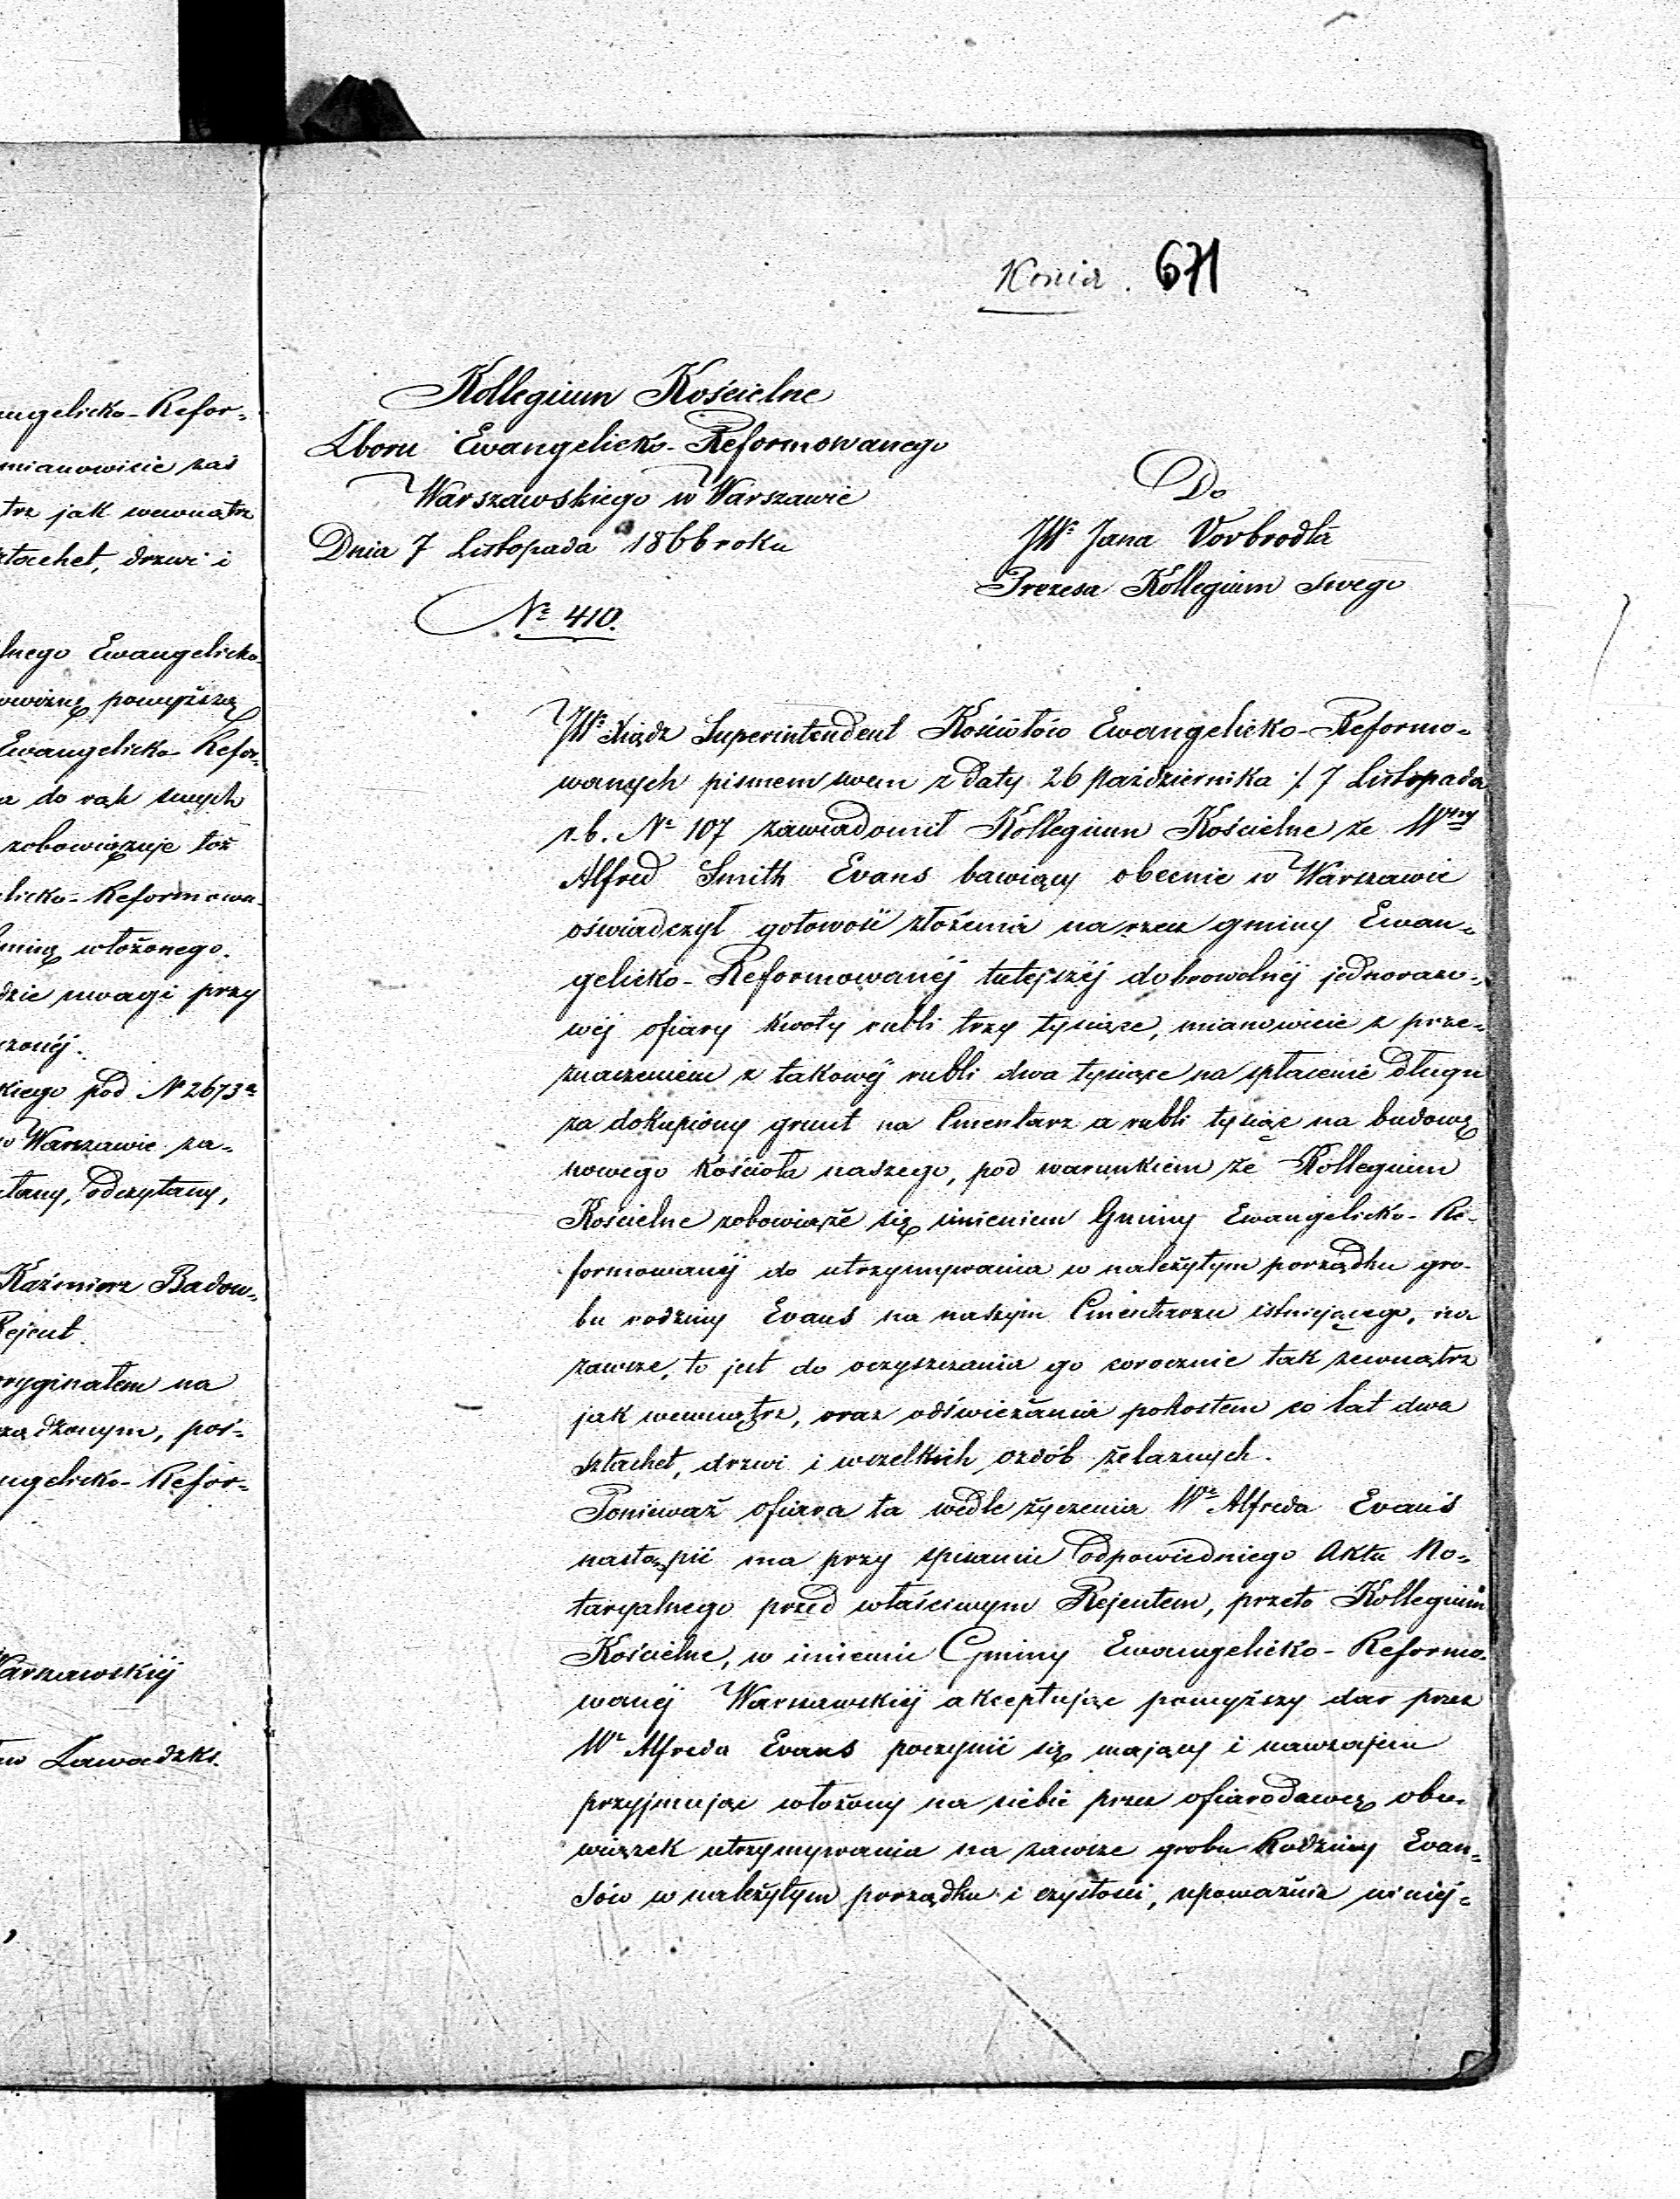 angelicko-Refor-
mianowicie zaś
trz jak wewnątrz
sztachet, drzwi i
lnego Ewangelicko-
powyższą
Ewangelicko-Refor-
a do rąk swych
zobowiązuje toż
licko-Reformowa-
gminę włożonego.
dzie uwagi przy
czonéj.
kiego pod № 2673a
w Warszawie za-
ytany, odczytany,
Kaźmierz Badow-
Rejent.
oryginałem na
ządzonym, poś-
angelicko-Refor-
Warszawskiéj
Zawadzki.
Kopia. 671
Kollegium Kościelne
Zboru Ewangelicko-Reformowanego
Warszawskiego w Warszawie
Dnia 7 Listopada 1866 roku
№ 410.
Do
JWo Jana Vorbrodta
Prezesa Kollegium swego
JW Xiądz Superintendent Kościołów Ewangelicko-Reformo-
wanych pismem swem z daty 26 Października /: 7 Listopada
r.b. № 107 zawiadomił Kollegium Kościelne że Wny
Alfred Smith Evans bawiący obecnie w Warszawie
oświadczył gotowość złożenia na rzecz gminy Ewan-
gelicko-Reformowanéj tutejszéj dobrowolnéj jednorazo-
wéj ofiary kwoty rubli trzy tysiące, mianowicie z prze-
znaczeniem z takowéj rubli dwa tysiące na spłacenie długu
za dokupiony grunt na Cmentarz a rubli tysiąc na budowę
nowego kościoła naszego, pod warunkiem że Kollegium
Kościelne zobowiąże się imieniem Gminy Ewangelicko-Re-
formowanéj do utrzymywania w należytym porządku gro-
bu rodziny Evans na naszym Cmentarzu istniejącego, na
zawsze, to jest do oczyszczania go corocznie tak zewnątrz
jak wewnątrz, oraz odświeżania pokostem co lat dwa
sztachet, drzwi i wszelkich ozdób żelaznych.
Ponieważ ofiara ta wedle życzenia Wo Alfreda Evans
nastąpić ma przy spisaniu odpowiedniego Aktu No-
taryalnego przed właściwym Rejentem, przeto Kollegium
Kościelne, w imieniu Gminy Ewangelicko-Reformo-
wanéj Warszawskiéj akceptując powyższy dar przez
Wo Alfreda Evans poczynić się mający i nawzajem
przyjmując włożony na siebie przez ofiarodawcę obo-
wiązek utrzymywania na zawsze grobu Rodziny Evan-
sów w należytym porządku i czystości, upoważnia niniéj-